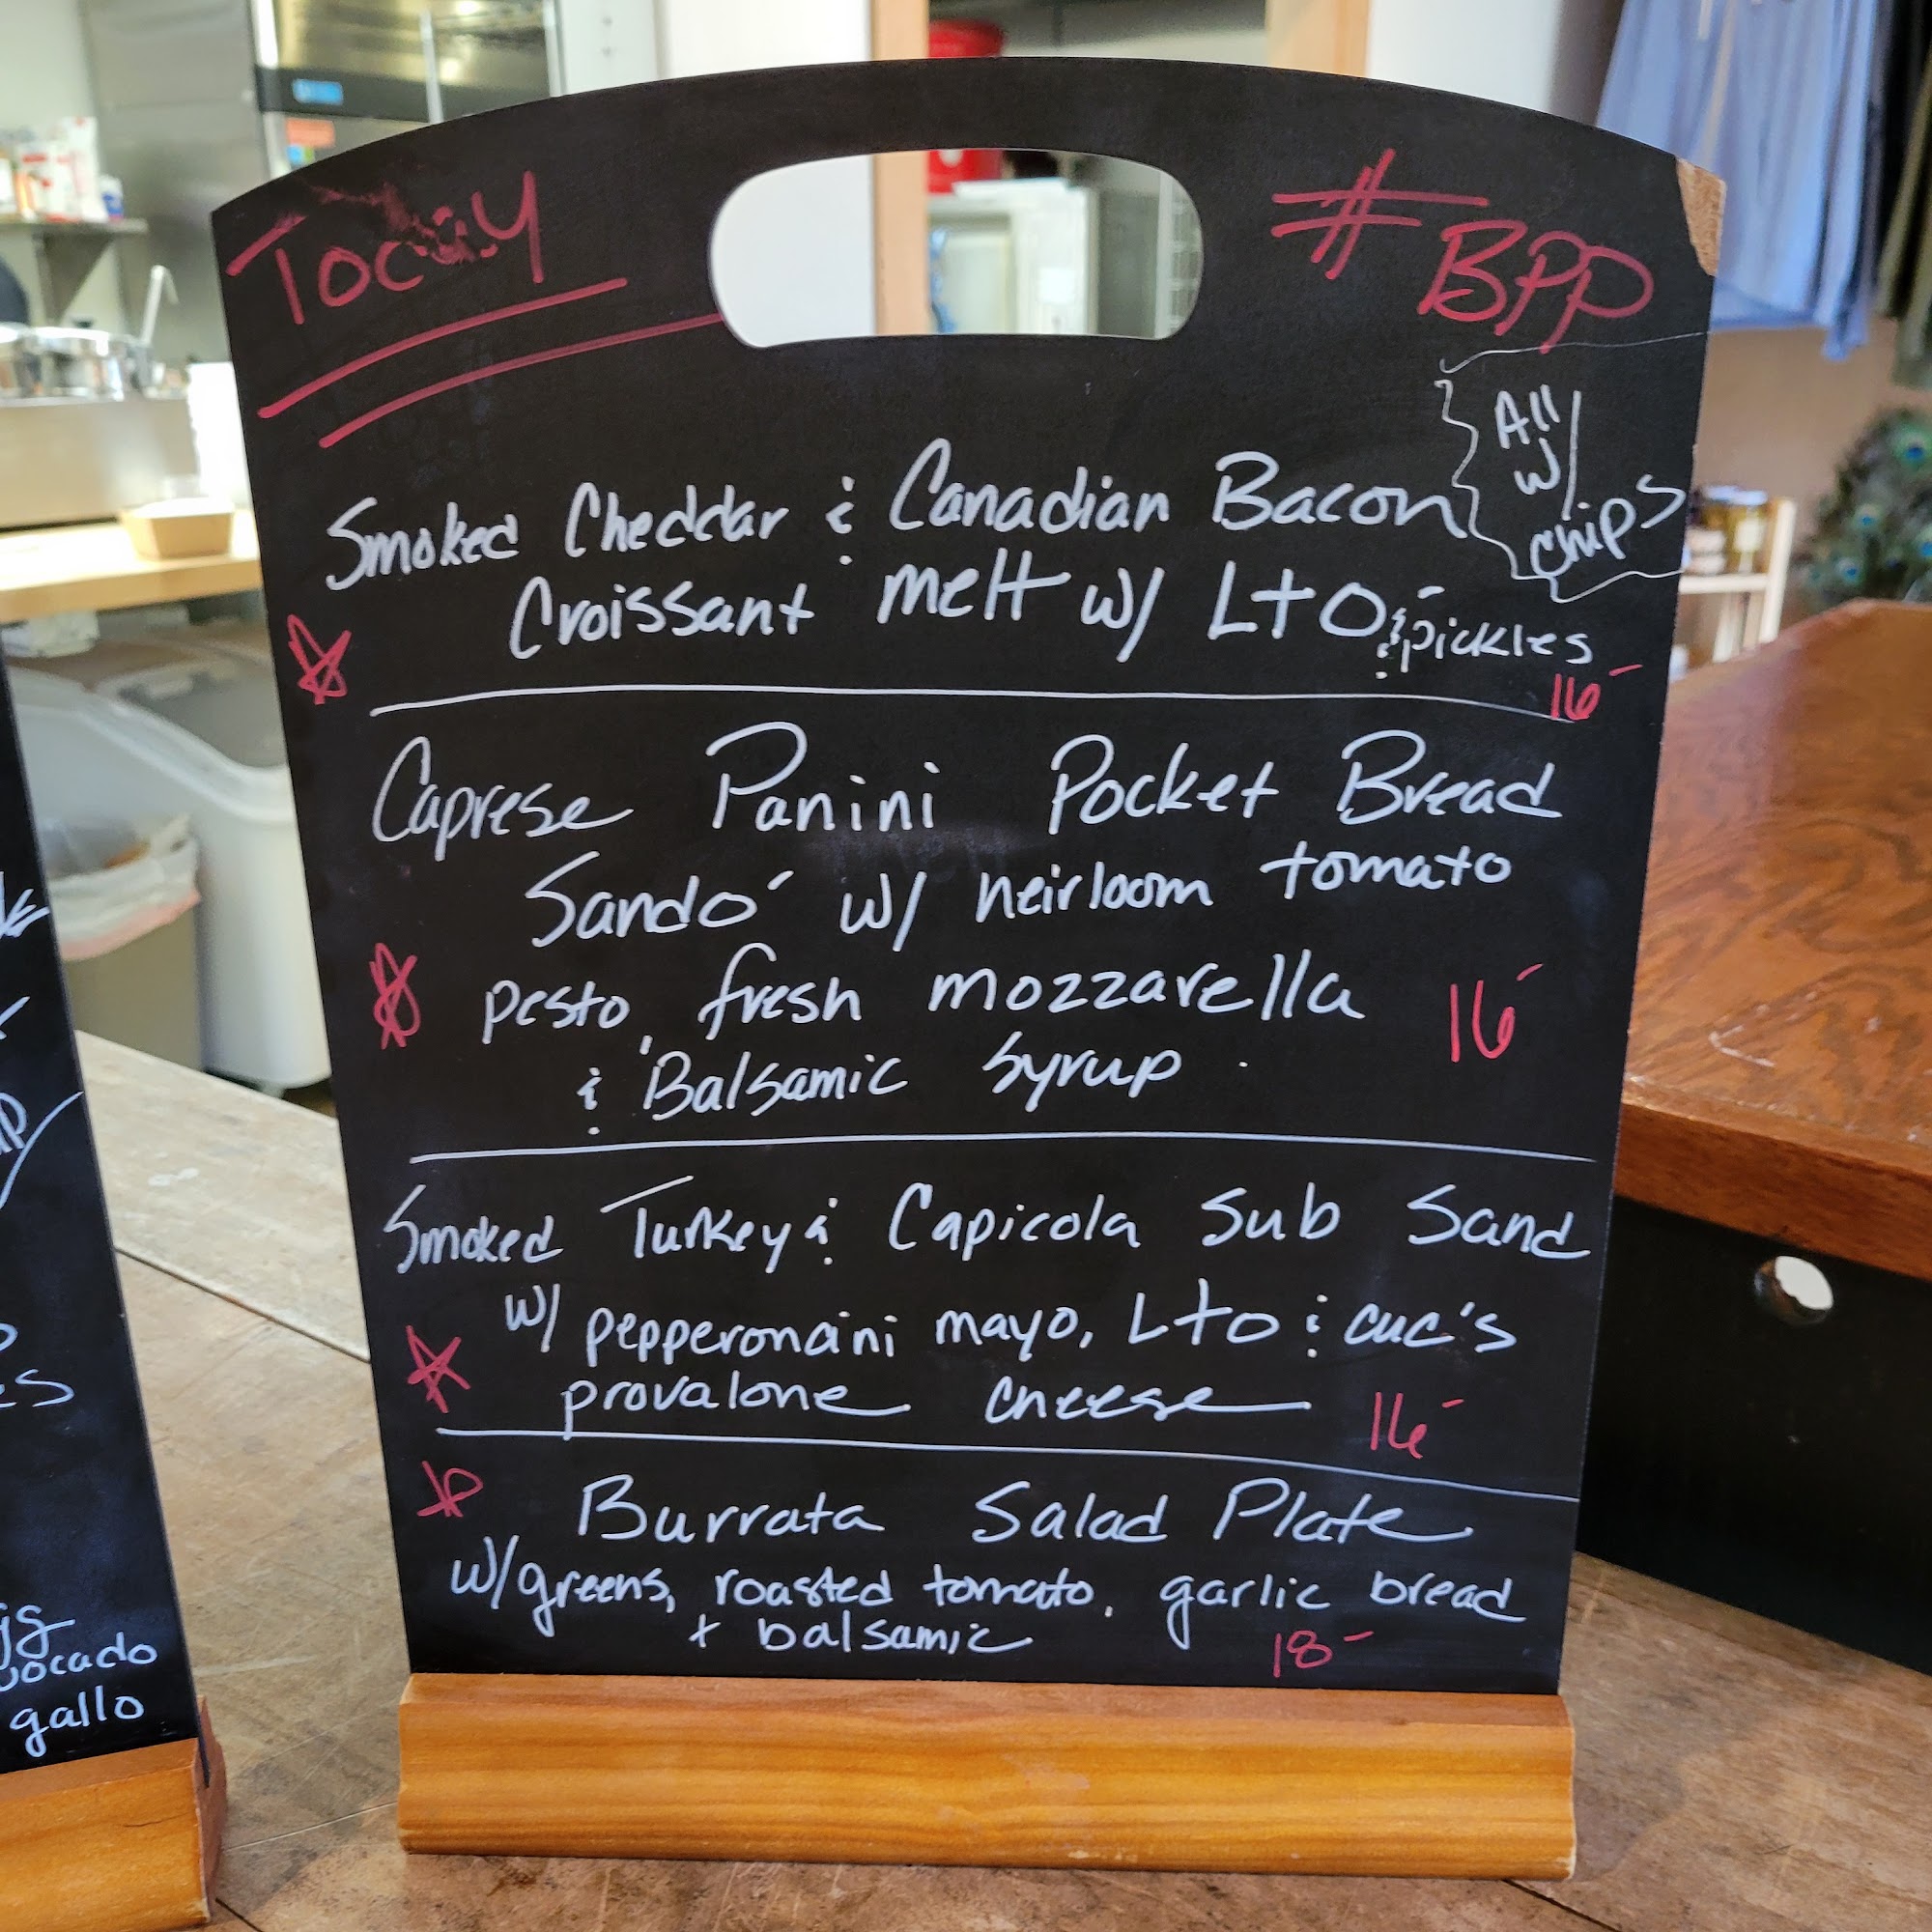 Today
# BPP
All
w/
chips
Smoked Cheddar & Canadian Bacon
Croissant melt w/ LTO & pickles
16-
Caprese Panini Pocket Bread
Sando' w/ heirloom tomato
pesto, fresh mozzarella
& Balsamic syrup.
16-
Smoked Turkey & Capicola Sub Sand
w/ pepperoncini mayo, LTO & cuc's
provalone cheese
16-
Burrata Salad Plate
w/ greens, roasted tomato, garlic bread
+ balsamic
18-
gallo